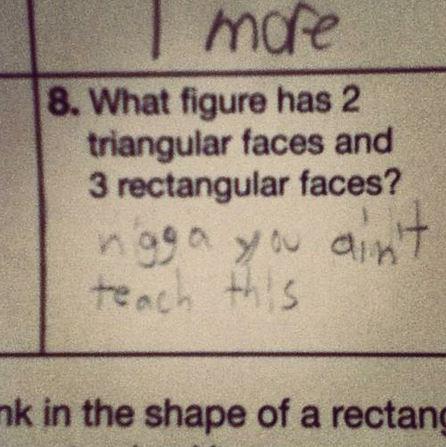 1 more
8. What figure has 2
triangular faces and
3 rectangular faces?
nigga you ain't
teach this
nk in the shape of a rectang